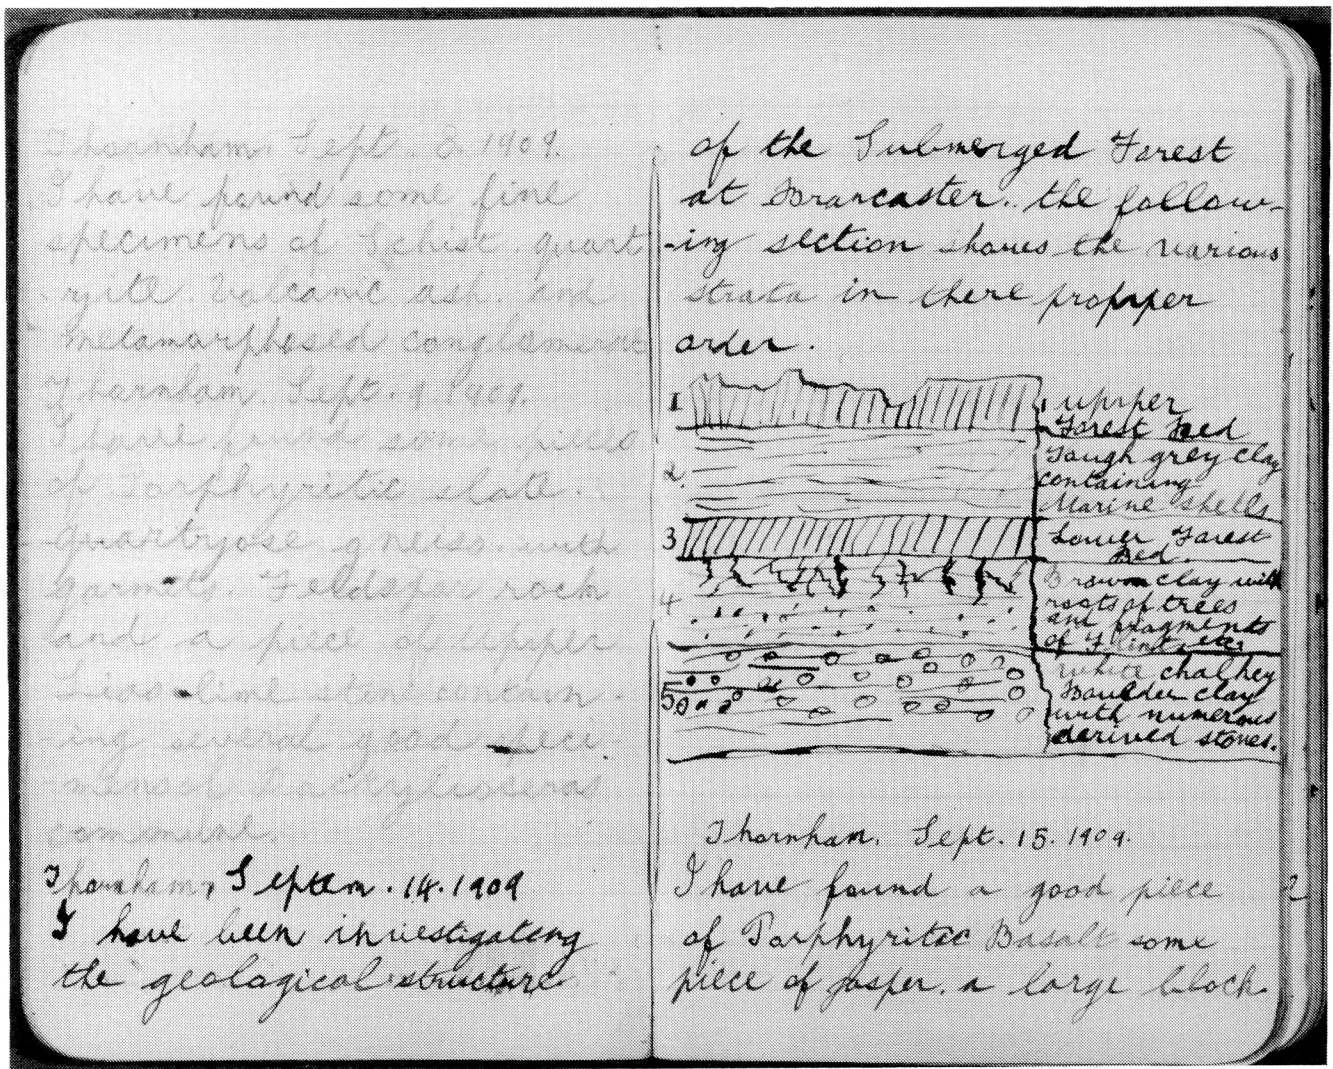 Thornham. Sept. 8. 1909.
I have found some fine
specimens of Schist. quart
-zite. Volcanic ash. and
metamorphosed conglomerate
Thornham. Sept. 9. 1909.
I have found some pieces
of Porphyritic slate.
quartzose gneiss. with
garnets. Feldspar rock
and a piece of Upper
Lias lime stone contain
-ing several good speci
-mens of Dactylioceras
commune.
Thornham, Septem. 14. 1909
I have been investigating
the geological structure
of the Submerged Forest
at Brancaster. the follow-
-ing section shows the various
strata in there propper
order.
1 upper
Forest Bed
2. Tough grey clay
containing
Marine shells
3 Lower Forest
Bed.
4 Brown clay with
roots of trees
and fragments
of Flint etc
5 White chalkey
Boulder clay
with numerous
derived stones.
Thornham. Sept. 15. 1909.
I have found a good piece
of Porphyritic Basalt some
piece of jasper. a large block